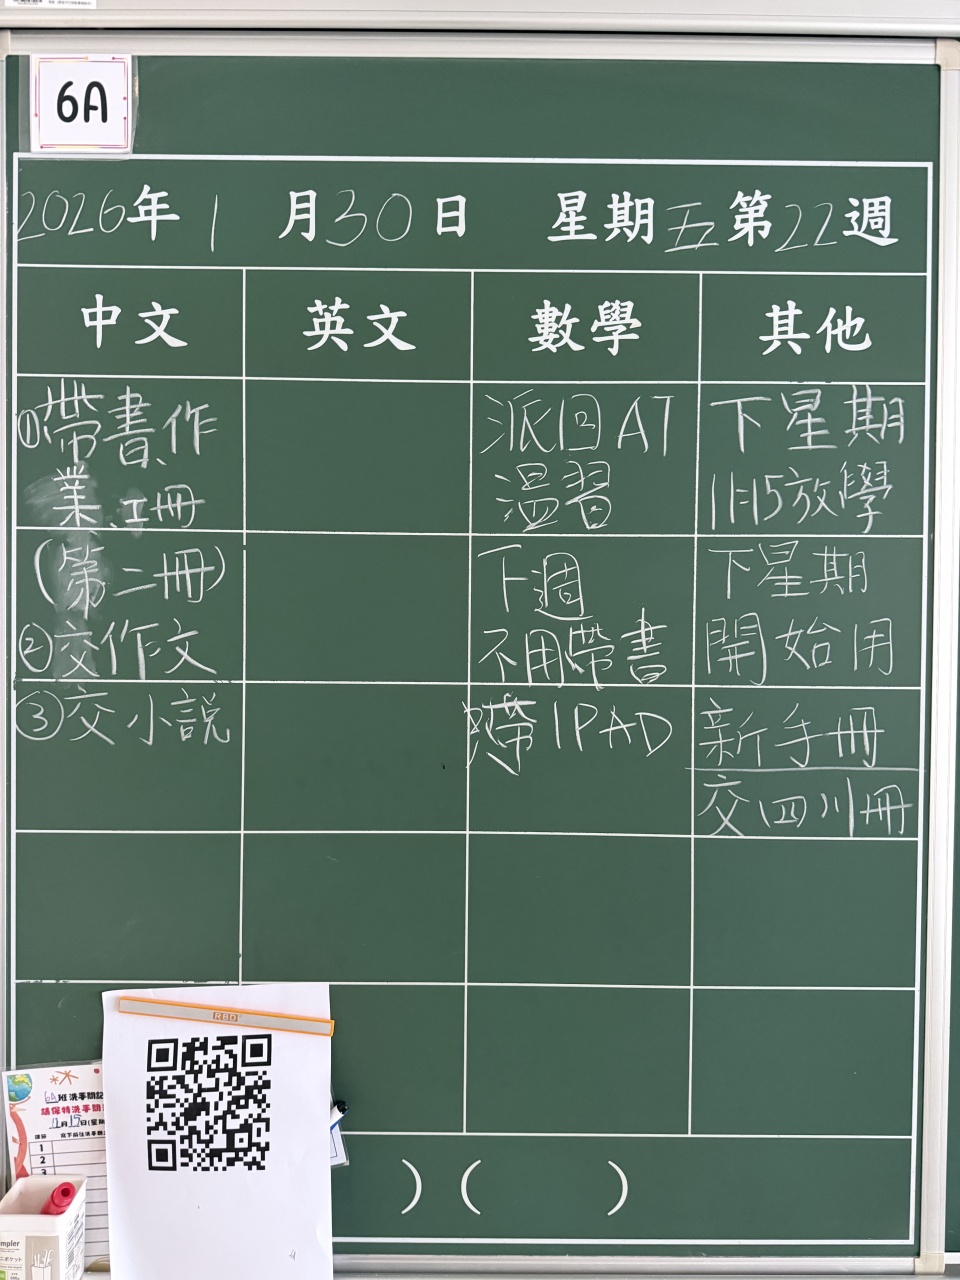 6A
2026年 1 月30日 星期五第22週
中文
英文
數學
其他
①帶書、作
業、工冊
(第二冊)
②交作文
③交小説
派回AT
溫習
下週
不用帶書
帶IPAD
下星期
11:15放學
下星期
開始用
新手冊
交(四)川冊
RBD
6A班洗手間記
請保持洗手間
日(星期
1
2
3
) ( )
mpler